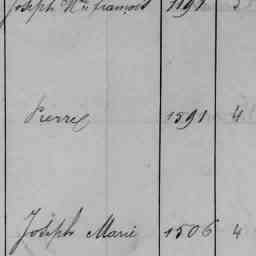 Joseph Mie françois 1191 3
Pierre 1591 4
Joseph Marie 1506 4